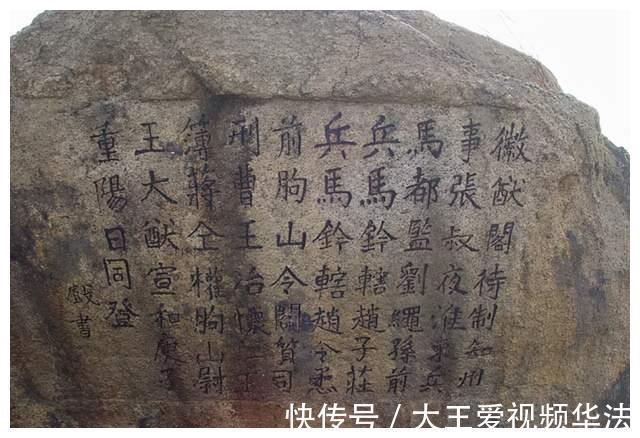 徽猷閣待制知州
事張叔夜淮東兵
馬都監劉繩孫前
兵馬鈐轄趙子莊
兵馬鈐轄趙令
前朐山令閻質司
刑曹王冶懷仁主
簿蔣仝權朐山尉
王大猷宣和庚子
重陽日同登
書
快传号 / 大王爱视频华法